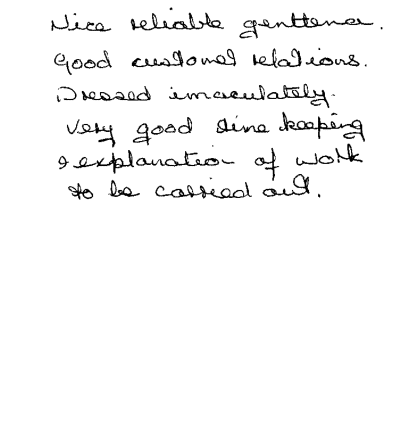 Nice reliable genttenen.
Good customer relations.
Dressed imaculately.
Very good time keeping
& explanation of work
to be carried out.